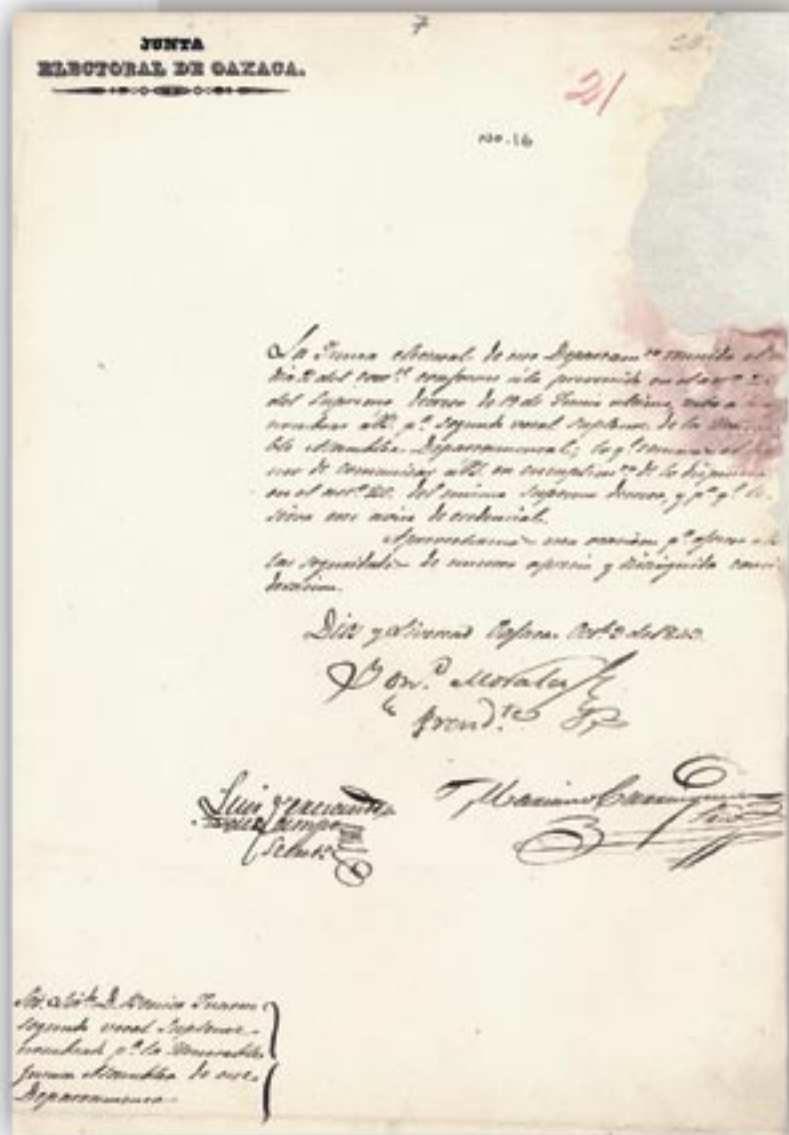 7
JUNTA
ELECTORAL DE OAXACA.
21
No. 16
La Junta electoral de este Departam.to reunida el
dia 2 del corr.te conforme á lo prevenido en el art.o
del Supremo decreto de 19 de Junio ultimo, tuvo a
nombrar á U. p.a segundo vocal suplente de la
ble Asamblea Departamental; lo q.e tenemos el
nor de comunicar á U. en cumplim.to de lo dispuesto
en el art.o del mismo Supremo decreto, y p.a q.e le
sirva este aviso de credencial.
Aprovechamos esta ocasion p.a ofrecer á
las seguridades de nuestro aprecio y distinguida consi
deracion.
Dios y Libertad Oajaca Oct.e 3 de 1843.
Morales
Presid.te
Luis Fernandez
del Campo
Srio
Mariano
Srio
Sor. Lic.do D. Benito Juarez
segundo vocal Suplente
nombrado p.a la Honorable
Asamblea de este
Departamento